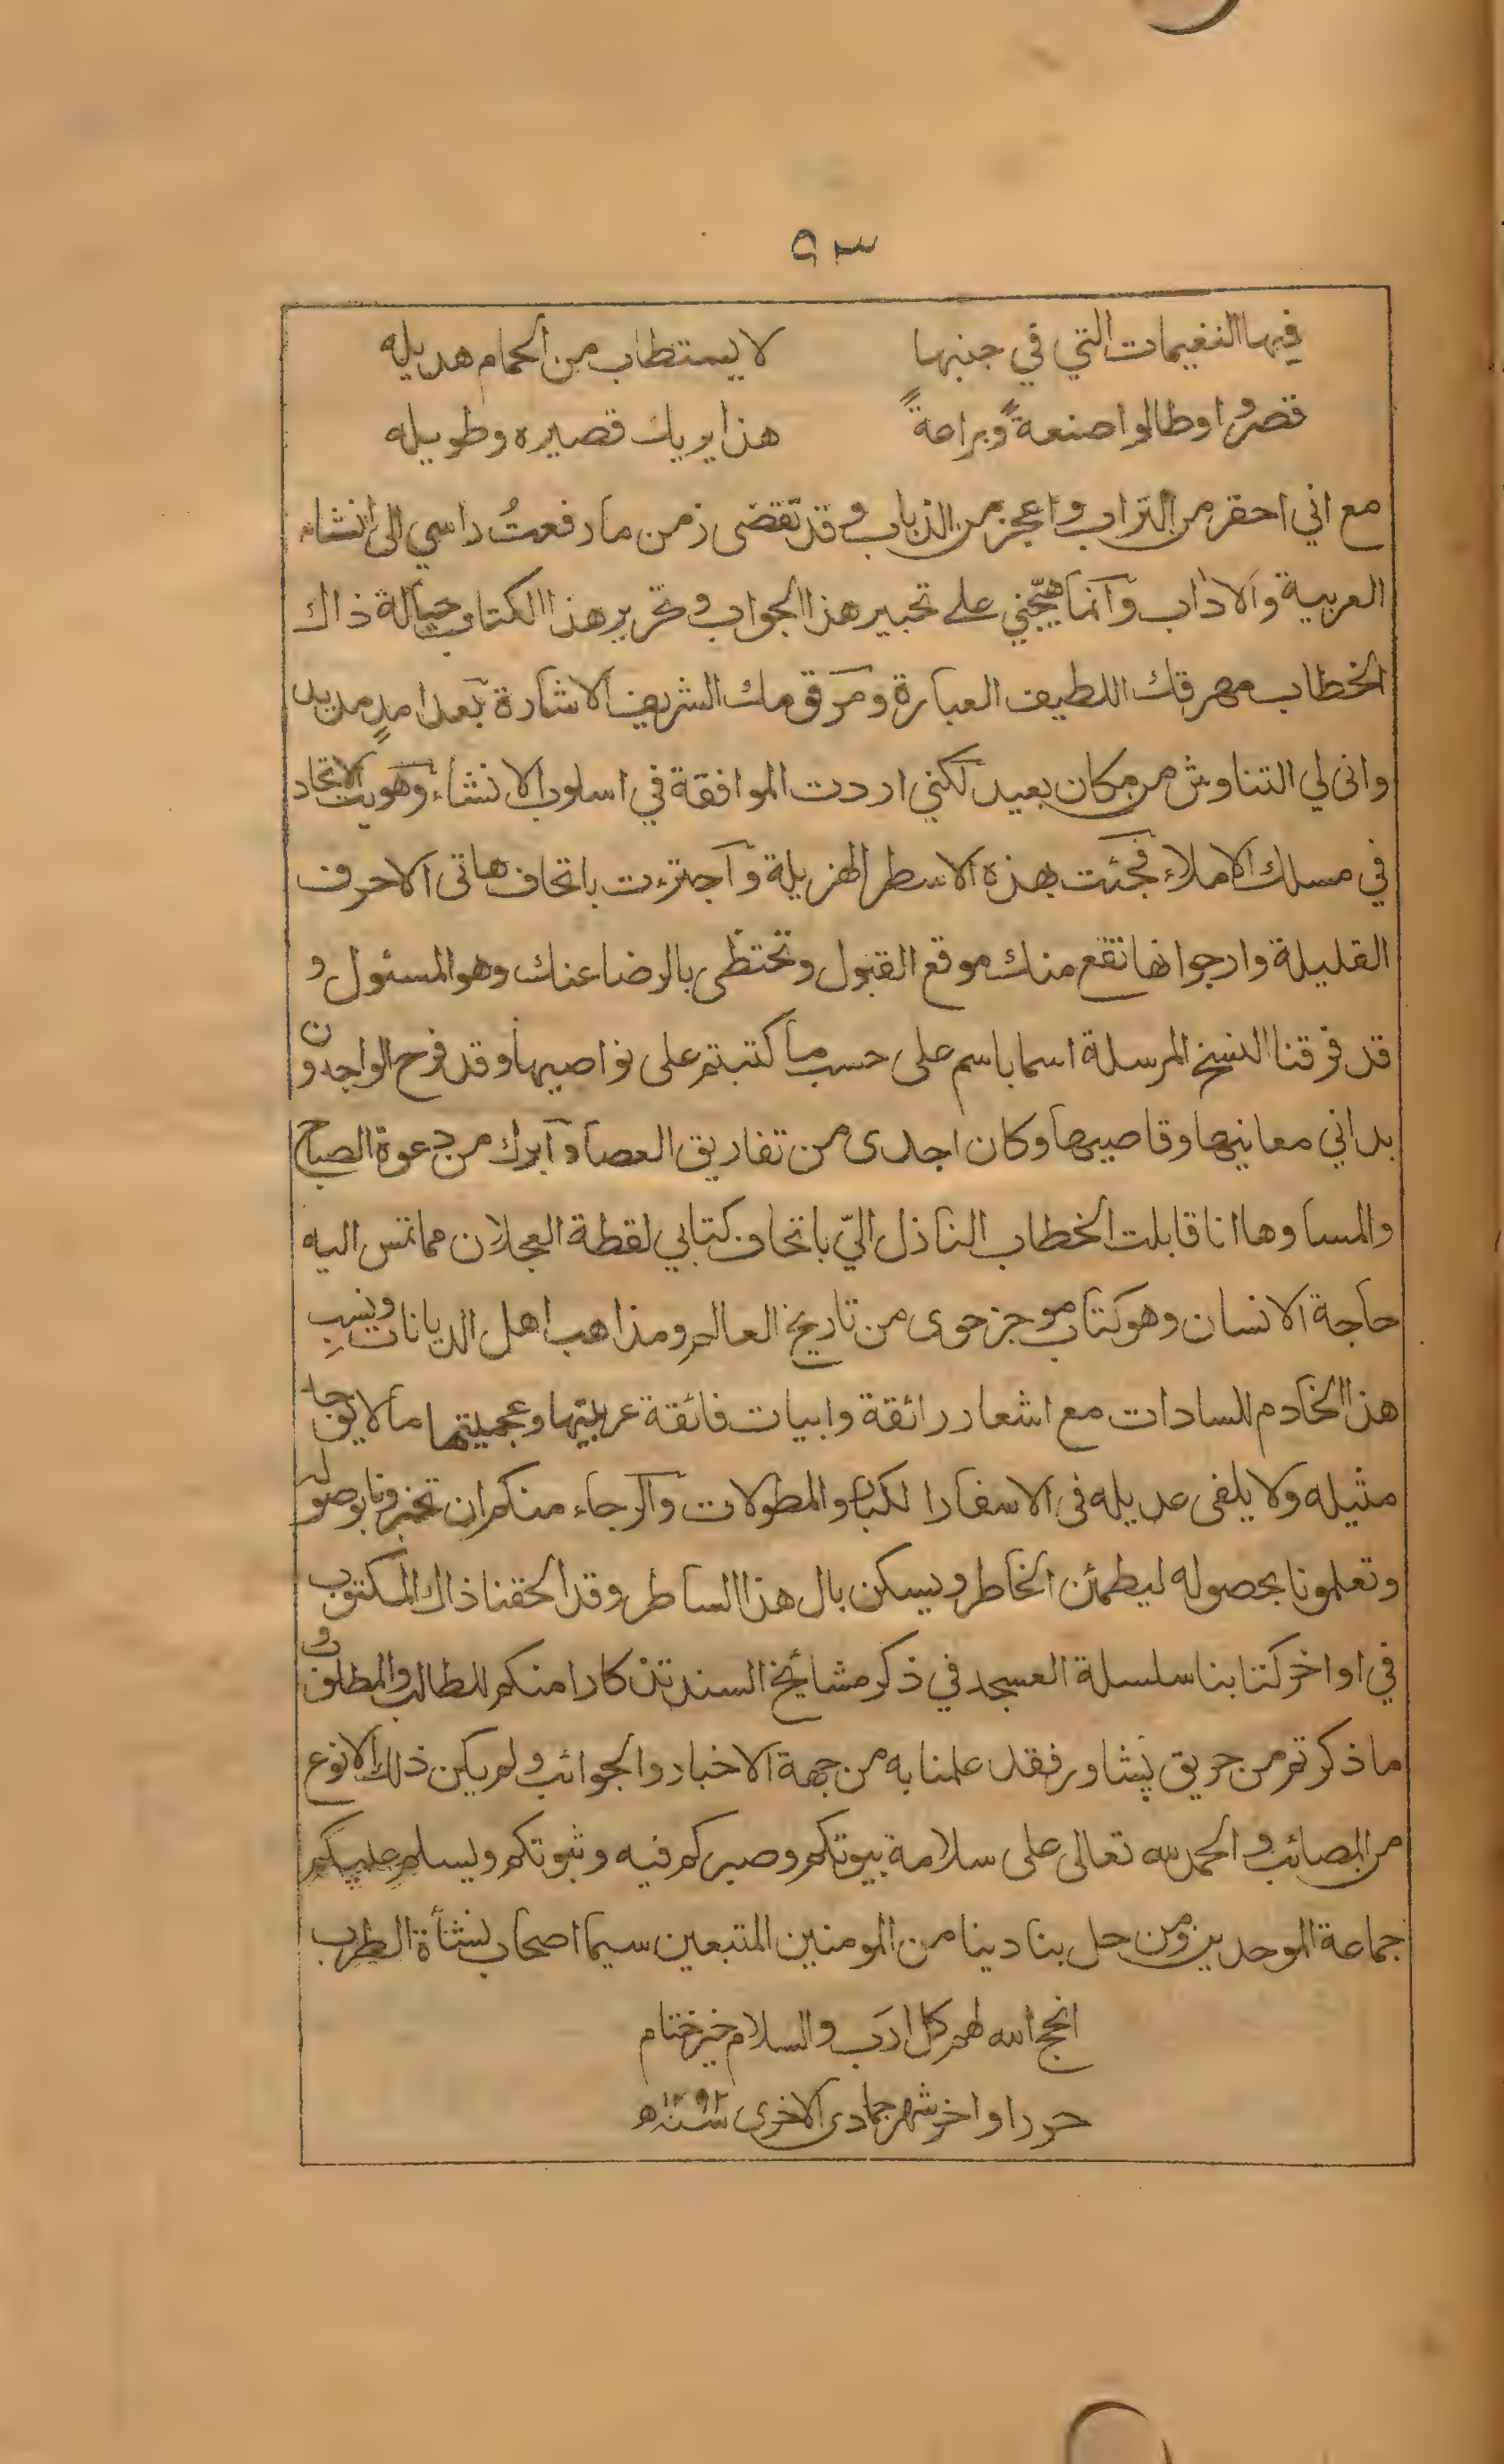 ٩٣
فيها النغيمات التي في جنبها لا يستطاب من الحمام هديله
قصرُوا وطالوا صنعةً وبراعةً هذا يريك قصيره وطويله
مع اني احقر من التراب واعجز من الذباب وقد تقضى زمن ما رفعتُ راسي الى انشاء
العربية والاداب وانما هيّجني على تحبير هذا الجواب وتحرير هذا الكتاب حيالة ذاك
الخطاب مهرقك اللطيف العبارة ومرقومك الشريف الاشارة بعد امدٍ مديد
وانى لي التناوش من مكان بعيد لكني اردت الموافقة في اسلوب الانشاء وهويت الاتحاد
في مسلك الاملاء فجئت بهذه الاسطر الهزيلة واجتزءت باتحاف هاتى الاحرف
القليلة وارجوا انها تقع منك موقع القبول وتحتظى بالرضا عنك وهو المسئول و
قد فرقنا النسخ المرسلة اسما باسم على حسب ما كتبتم على نواصيها وقد فرح الواجدون
بداني معانيها وقاصيها وكان اجدى من تفاريق العصا وابرك من دعوة الصباح
والمسا وها انا قابلت الخطاب النازل اليّ باتحاف كتابي لقطة العجلان مما تمس اليه
حاجة الانسان وهو كتاب موجز حوى من تاريخ العالم ومذاهب اهل الديانات ونسبِ
هذا الخادم للسادات مع اشعار رائقة وابيات فائقة عربيتها وعجميتها ما لا يوجد
مثيله ولا يلفى عديله فى الاسفار الكبار والمطولات والرجاء منكم ان تخبرونا بوصوله
وتعلمونا بحصوله ليطمئن الخاطر ويسكن بال هذا الساطر وقد الحقنا ذاك المكتوب
في اواخر كتابنا سلسلة العسجد في ذكر مشائخ السند تذكارا منكم للطالب والمطلوب و
ما ذكرتم من حريق پشاور فقد علمنا به من جهة الاخبار والجوائب ولم يكن ذلك الا نوع
من المصائب والحمد لله تعالى على سلامة بيوتكم وصبركم فيه وثبوتكم ويسلم عليكم
جماعة الموحدين ومن حل بنادينا من المومنين المتبعين سيما اصحاب نشأة الطرب
انجح الله لهم كل ارَب والسلام خير ختام
حرر اواخر شهر جمادى الاخرى سنة ١٢٩٢ ه